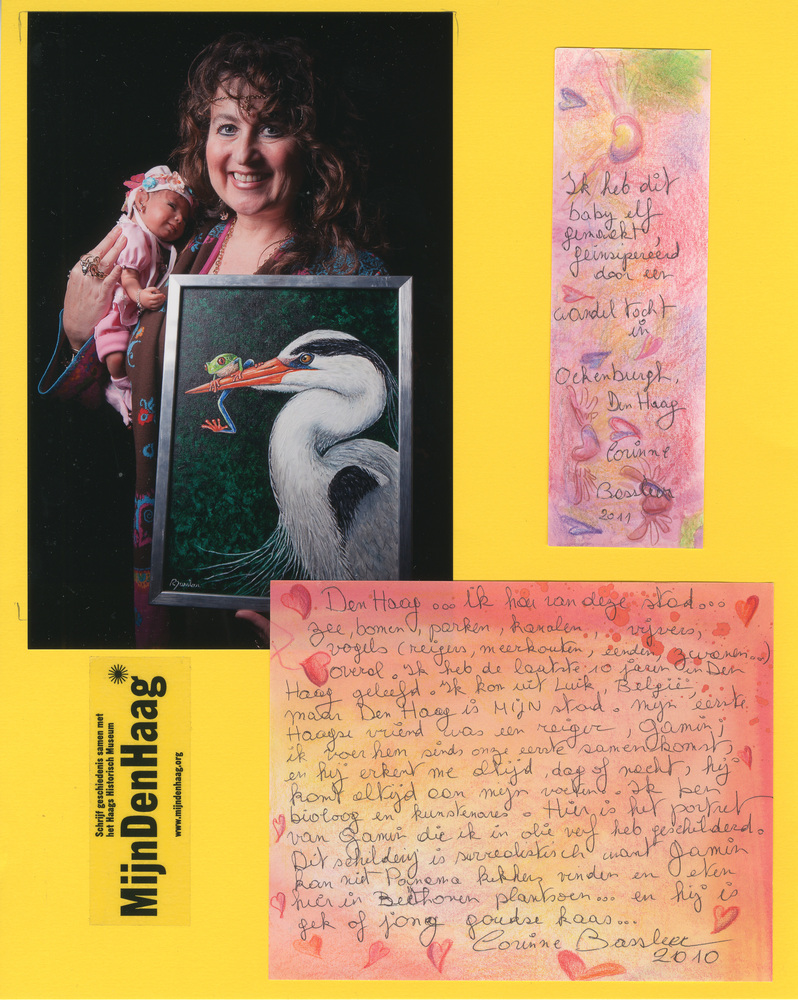 Ik heb dit
baby elf
gemaakt,
geïnsipereerd
door een
wandel tocht
in
Ockenburgh,
Den Haag
Corinne
Basslier
2011
Den Haag ... ik hou van deze stad...
zee, bomen, parken, kanalen, vijvers,
vogels (reigers, meerkouten, eenden, zwanen...)
overal. Ik heb de laatste 10 jaren in Den
Haag geleefd. Ik kon uit Luik, België,
maar Den Haag is MijN stad. mijn eerste
Haagse vriend was een reiger, Jamin;
ik voer hem sinds onze eerste samen komst,
en hij erkent me altijd, dag of nacht, hij
komt altijd aan mijn voeten. Ik ben
bioloog en kunstenares. Hier is het portret
van Jamin die ik in olie verf heb geschilderd.
Dit schilderij is surrealistisch want Jamin
kan niet Panama kikkers vinden en eten
hier in Beethoven plantsoen... en hij is
gek of jong goudse kaas...
Corinne Basslier
2010
Schrijf geschiedenis samen met
het Haags Historisch Museum
MijnDenHaag
www.mijndenhaag.org